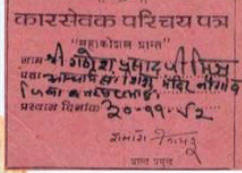 कारसेवक परिचय पत्र
"महाकोशल प्रान्त"
नाम श्री गणेश प्रसाद जी मिश्र
पता शिशु मंदिर नौगांव
जिला
प्रस्थान दिनांक २०-११-९२
प्रान्त प्रमुख